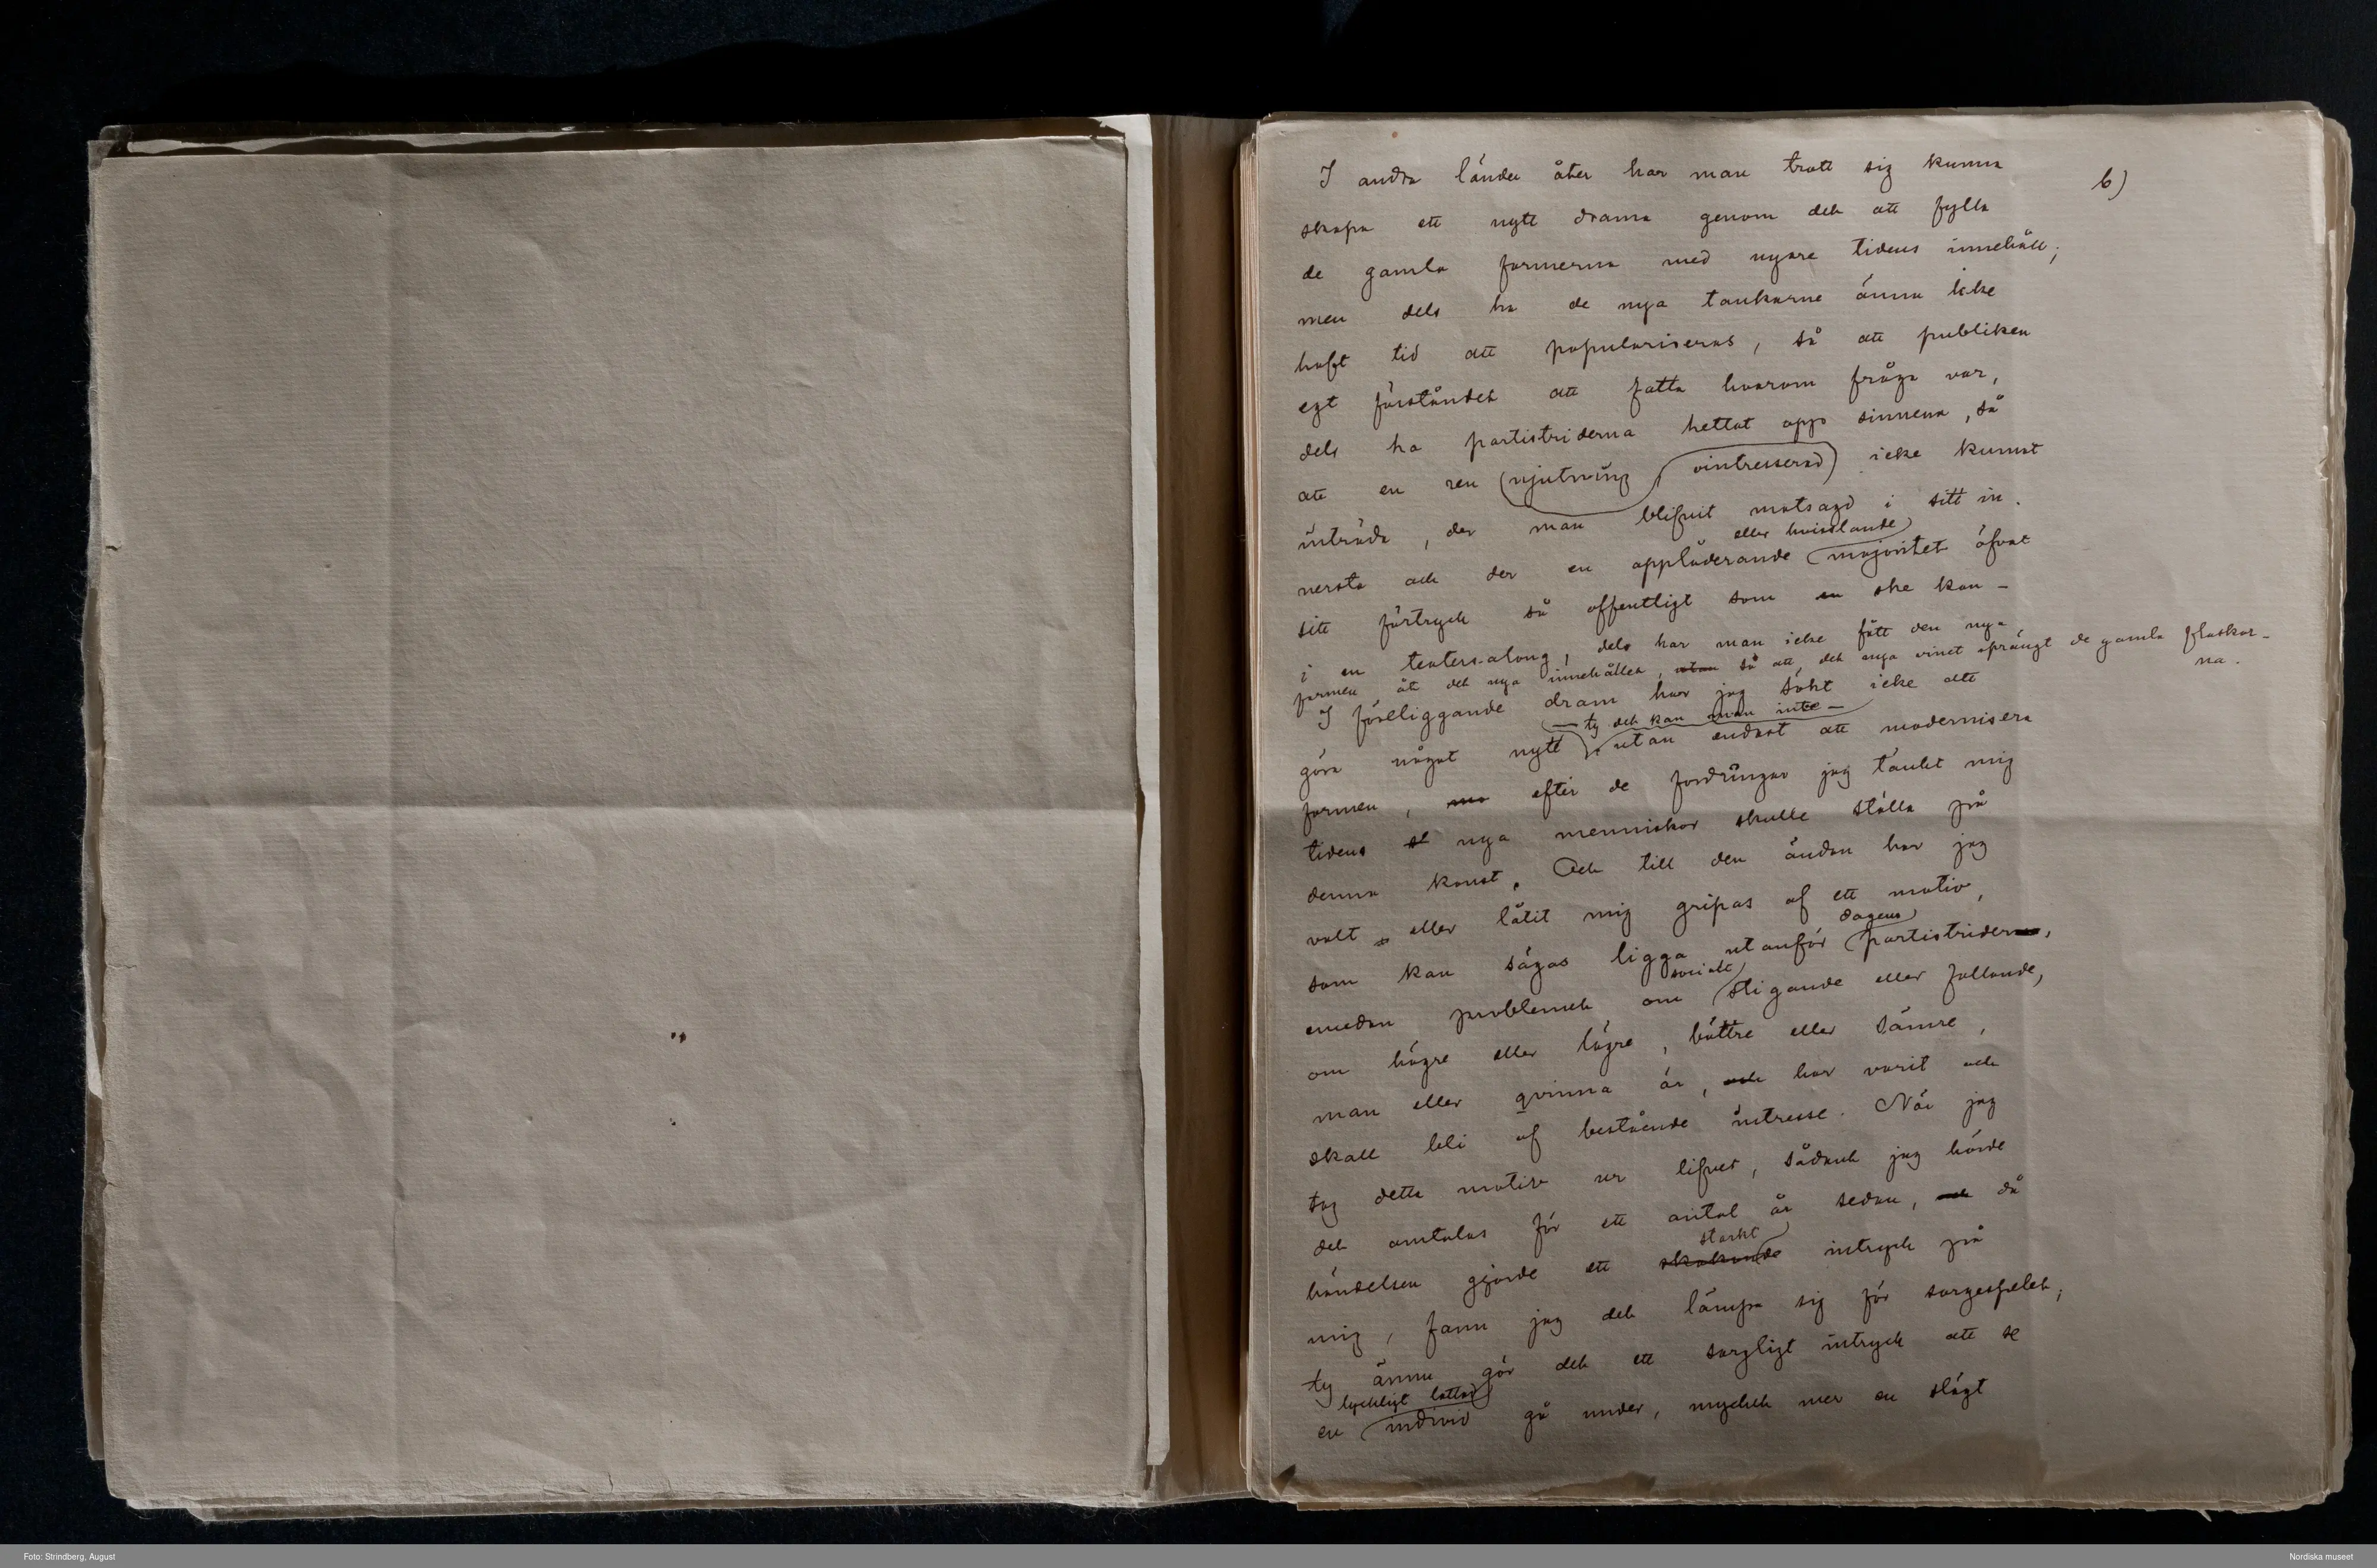 b)
I andra länder åter har man trott sig kunna
skapa ett nytt drama genom det att fylla
de gamla formerna med nyare tidens innehåll;
men dels ha de nya tankarne ännu icke
haft tid att populariseras, så att publiken
egt förståndet att fatta hvarom fråga var,
dels ha partistriderna hettat opp sinnena, så
att en ren njutning ointresserad icke kunnat
inträda, der man blifvit motsagd i sitt in-
eller hvisslande
nersta och der en applåderande majoritet öfvat
sitt förtryck så offentligt som en ske kan –
i en teatersalong, dels har man icke fått den nya
formen åt det nya innehållet, utan så att det nya vinet sprängt de gamla flaskor-
na.
I föreliggande dram har jag sökt icke att
– ty det kan man inte –
göra något nytt, utan endast att modernisera
formen, efter de fordringar jag tänkt mig
tidens nya menniskor skulle ställa på
denna konst. Och till den ändan har jag
valt eller låtit mig gripas af ett motiv,
dagens
som kan sägas ligga utanför partistriderna,
socialt
emedan problemet om stigande eller fallande,
om högre eller lägre, bättre eller sämre,
man eller qvinna är, och har varit och
skall bli af bestående intresse. När jag
tog detta motiv ur lifvet, sådant jag hörde
det omtalas för ett antal år sedan, och då
starkt
händelsen gjorde ett skakande intryck på
mig, fann jag det lämpa sig för sorgespelet;
ty ännu gör det ett sorgligt intryck att se
lyckligt lottad
en individ gå under, mycket mer en slägt
Foto: Strindberg, August
Nordiska museet